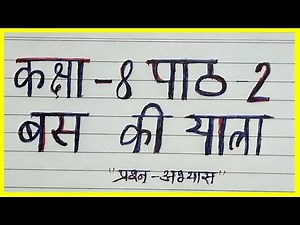 कक्षा -8 पाठ -2
बस की यात्रा
"प्रश्न-अभ्यास"